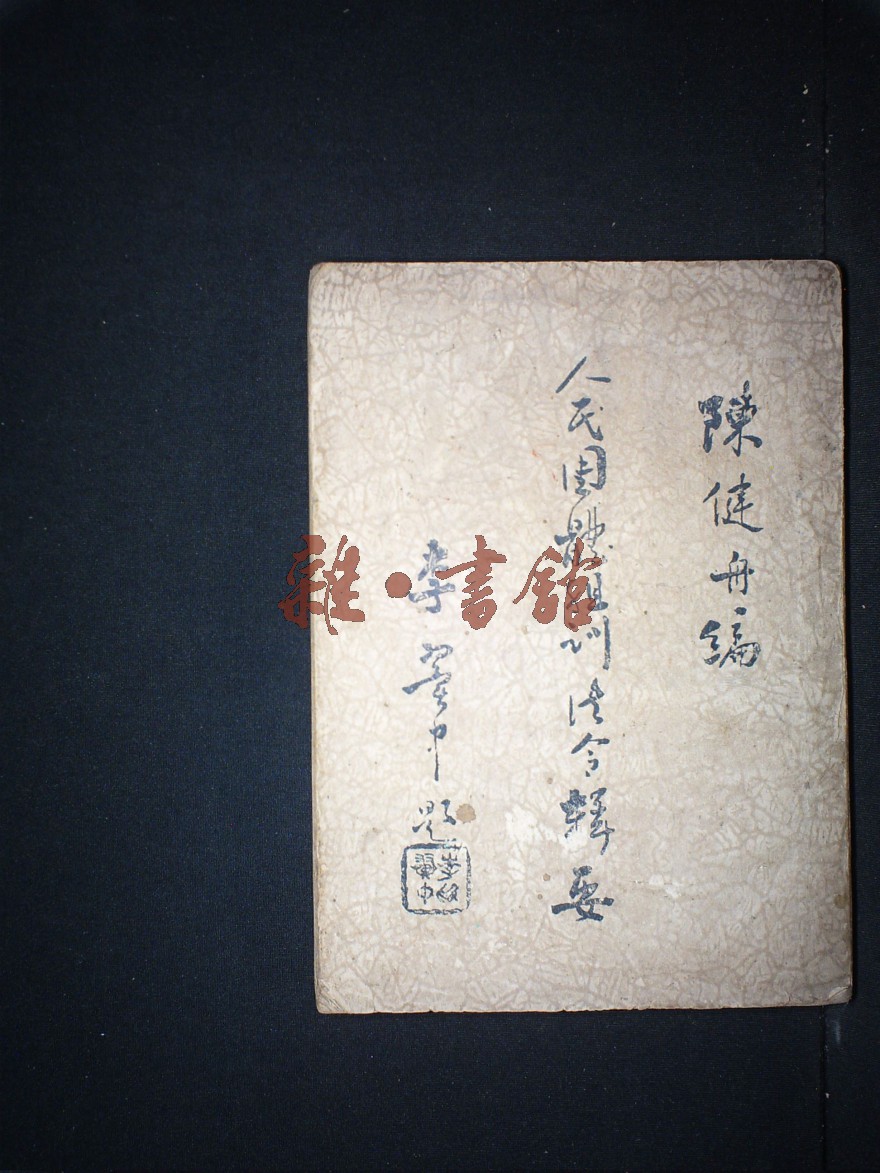 陳健舟編
人民團體組訓法令輯要
李翼中題
雜·書館